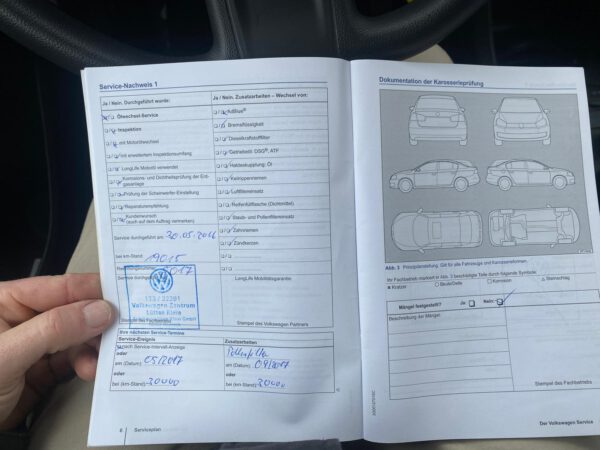 Service-Nachweis 1
Ja / Nein. Durchgeführt wurde:
Ölwechsel-Service
Inspektion
mit Motorölwechsel
mit erweitertem Inspektionsumfang
LongLife Motoröl verwendet
Korrosions- und Dichtheitsprüfung der Erdgasanlage
Prüfung der Scheinwerfer-Einstellung
Reparaturempfehlung
Kundenwunsch
(auch auf dem Auftrag vermerken)
Service durchgeführt am: 30.05.2016
bei km-Stand: 19015
Service durchgeführt
133 / 22291
Volkswagen Zentrum
Lütten Klein
Stempel des Fachbetriebs
Ja / Nein. Zusatzarbeiten – Wechsel von:
AdBlue®
Bremsflüssigkeit
Dieselkraftstofffilter
Getriebeöl: DSG®, ATF
Haldexkupplung: Öl
Keilrippenriemen
Luftfiltereinsatz
Reifenfüllflasche (Dichtmittel)
Staub- und Pollenfiltereinsatz
Zahnriemen
Zündkerzen
LongLife Mobilitätsgarantie
Stempel des Volkswagen Partners
Ihre nächsten Service-Termine
Service-Ereignis
nach Service-Intervall-Anzeige
oder
am (Datum): 05/2017
oder
bei (km-Stand): 30000
Zusatzarbeiten
Pollenfilter
am (Datum): 09/2017
oder
bei (km-Stand):
6 Serviceplan
Dokumentation der Karosserieprüfung
Abb. 3 Prinzipdarstellung: Gilt für alle Fahrzeuge und Karosserieformen.
Ihr Fachbetrieb markiert in Abb. 3 beschädigte Teile durch folgende Symbole:
Kratzer Beule/Delle Korrosion Steinschlag
Mängel festgestellt? Ja Nein
Beschreibung der Mängel:
Stempel des Fachbetriebs
Der Volkswagen Service